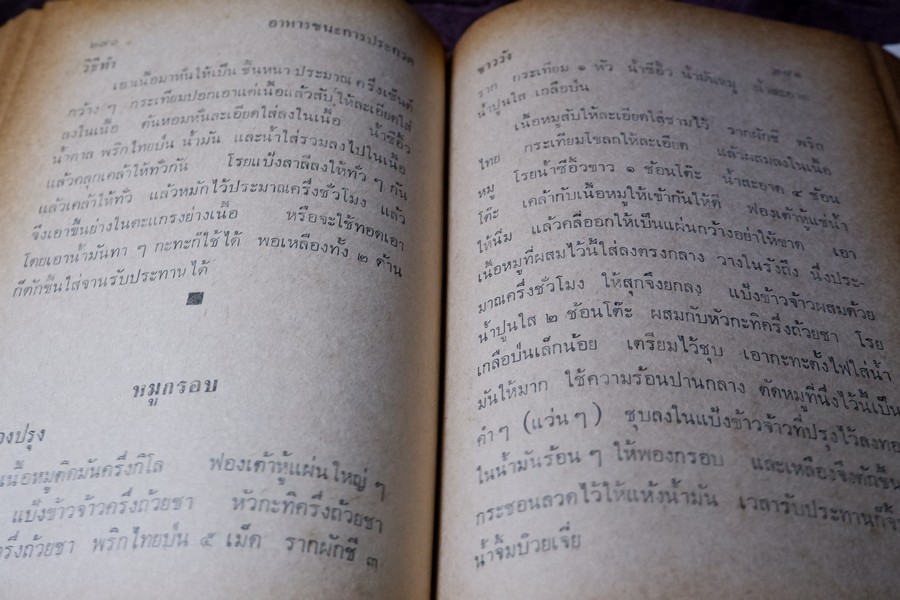 อาหารชนะการประกวด
๒๙๐
วิธีทำ
เอาเนื้อมาหั่นให้เป็น ชิ้นหนา ประมาณ ครึ่งเซ็นต์
กว้าง ๆ กระเทียมปอกเอาแต่เนื้อแล้วสับให้ละเอียดใส่
ลงในเนื้อ ต้นหอมหั่นละเอียดใส่ลงในเนื้อ น้ำซีอิ้ว
น้ำตาล พริกไทยป่น น้ำมัน และน้ำใส่รวมลงไปในเนื้อ
แล้วคลุกเคล้าให้ทั่วกัน โรยแป้งสาลีลงให้ทั่ว ๆ กัน
แล้วเคล้าให้ทั่ว แล้วหมักไว้ประมาณครึ่งชั่วโมง แล้ว
จึงเอาขึ้นย่างในตะแกรงย่างเนื้อ หรือจะใช้ทอดเอา
โดยเอาน้ำมันทา ๆ กะทะก็ใช้ได้ พอเหลืองทั้ง ๒ ด้าน
ก็ตักขึ้นใส่จานรับประทานได้
หมูกรอบ
องปรุง
เนื้อหมูติดมันครึ่งกิโล ฟองเต้าหู้แผ่นใหญ่ ๆ
แป้งข้าวจ้าวครึ่งถ้วยชา หัวกะทิครึ่งถ้วยชา
ครึ่งถ้วยชา พริกไทยป่น ๕ เม็ด รากผักชี ๓
ชาววัง
ราก กระเทียม ๑ หัว น้ำซีอิ้ว น้ำมันหมู น้ำสะอาด
น้ำปูนใส เกลือป่น
เนื้อหมูสับให้ละเอียดใส่ชามไว้ รากผักชี พริก
ไทย กระเทียมโขลกให้ละเอียด แล้วผสมลงในเนื้อ
หมู โรยน้ำซีอิ้วขาว ๑ ช้อนโต๊ะ น้ำสะอาด ๔ ช้อน
โต๊ะ เคล้ากับเนื้อหมูให้เข้ากันให้ดี ฟองเต้าหู้แช่น้ำ
ให้นิ่ม แล้วคลี่ออกให้เป็นแผ่นกว้างอย่าให้ขาด เอา
เนื้อหมูที่ผสมไว้นี้ใส่ลงตรงกลาง วางในรังถึง นึ่งประ-
มาณครึ่งชั่วโมง ให้สุกจึงยกลง แป้งข้าวจ้าวผสมด้วย
น้ำปูนใส ๒ ช้อนโต๊ะ ผสมกับหัวกะทิครึ่งถ้วยชา โรย
เกลือป่นเล็กน้อย เตรียมไว้ชุบ เอากะทะตั้งไฟใส่น้ำ
มันให้มาก ใช้ความร้อนปานกลาง ตัดหมูที่นึ่งไว้นี้เป็น
คำๆ (แว่นๆ) ชุบลงในแป้งข้าวจ้าวที่ปรุงไว้ลงทอ
ในน้ำมันร้อน ๆ ให้พองกรอบ และเหลืองจึงตักขึ้น
กระชอนลวดไว้ให้แห้งน้ำมัน เวลารับประทานก็
น้ำจิ้มบ๊วยเจี่ย